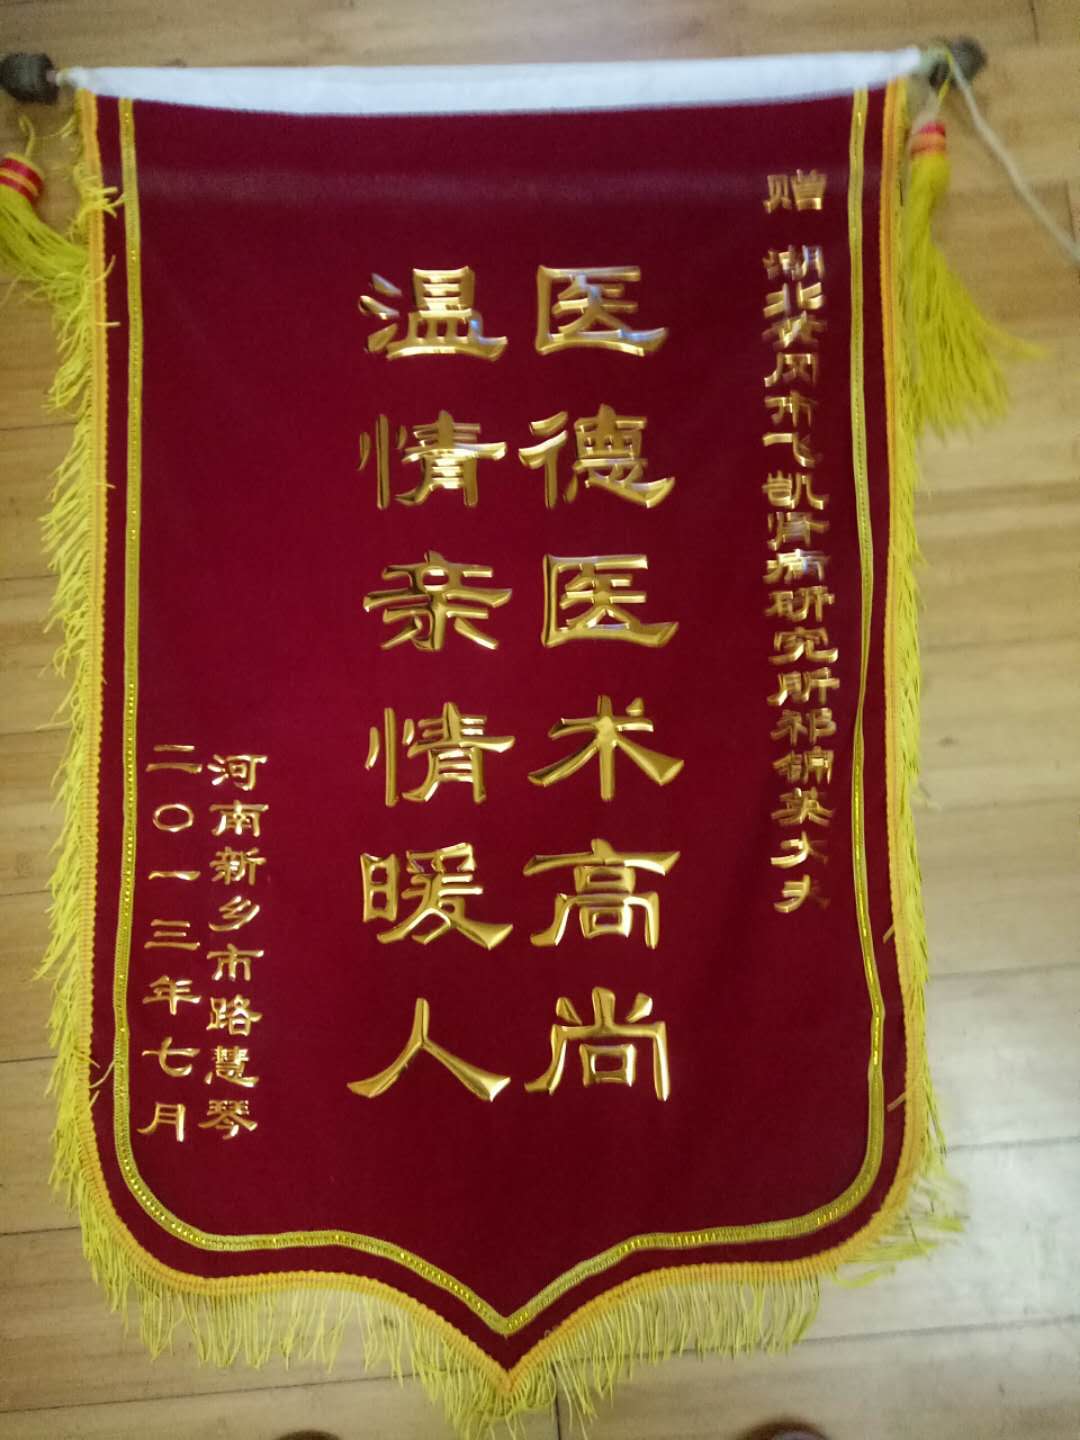 赠 湖北黄冈市飞凯肾病研究所祁锦英大夫
医德医术高尚
温情亲情暖人
河南新乡市路慧琴
二〇一三年七月